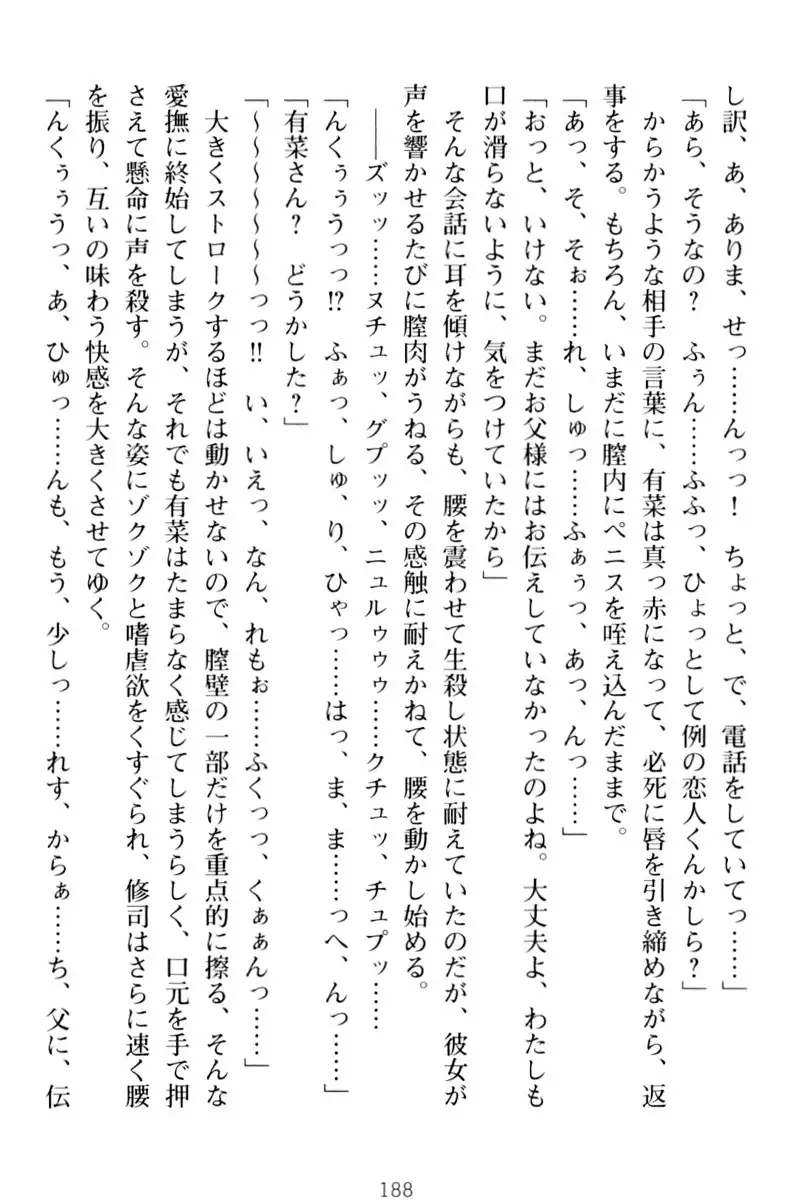 し訳、あ、ありま、せっ……んっっ！　ちょっと、で、電話をしていてっ……」
「あら、そうなの？　ふぅん……ふふっ、ひょっとして例の恋人くんかしら？」
　からかうような相手の言葉に、有菜は真っ赤になって、必死に唇を引き締めながら、返
事をする。もちろん、いまだに膣内にペニスを咥え込んだままで。
「あっ、そ、そぉ……れ、しゅっ……ふぁぅっ、あっ、んっ……」
「おっと、いけない。まだお父様にはお伝えしていなかったのよね。大丈夫よ、わたしも
口が滑らないように、気をつけていたから」
　そんな会話に耳を傾けながらも、腰を震わせて生殺し状態に耐えていたのだが、彼女が
声を響かせるたびに膣肉がうねる、その感触に耐えかねて、腰を動かし始める。
　――ズッッ……ヌチュッ、グプッッ、ニュルゥゥゥ……クチュッ、チュプッ……
「んくぅぅうっっ⁉　ふぁっ、しゅ、り、ひゃっ……はっ、ま、ま……っへ、んっ……」
「有菜さん？　どうかした？」
「～～～～～～～っっ‼　い、いえっ、なん、れもぉ……ふくっっ、くぁぁんっ……」
　大きくストロークするほどは動かせないので、膣壁の一部だけを重点的に擦る、そんな
愛撫に終始してしまうが、それでも有菜はたまらなく感じてしまうらしく、口元を手で押
さえて懸命に声を殺す。そんな姿にゾクゾクと嗜虐欲をくすぐられ、修司はさらに速く腰
を振り、互いの味わう快感を大きくさせてゆく。
「んくぅぅうっ、あ、ひゅっ……んも、もう、少しっ……れす、からぁ……ち、父に、伝
188